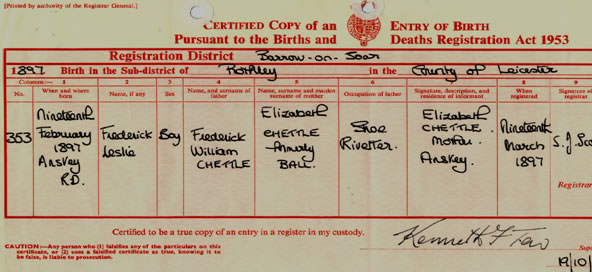 [Printed by authority of the Registrar General.]
CERTIFIED COPY of an ENTRY OF BIRTH
Pursuant to the Births and Deaths Registration Act 1953
Registration District Barrow-on-Soar
1897 Birth in the Sub-district of Rothley in the County of Leicester
Columns:— 1 2 3 4 5 6 7 8 9
No. When and where born Name, if any Sex Name, and surname of father Name, surname and maiden surname of mother Occupation of father Signature, description, and residence of informant When registered Signature of registrar
353
Nineteenth
February
1897
Anstey
R.D.
Frederick
Leslie
Boy
Frederick
William
CHETTLE
Elizabeth
CHETTLE
formerly
BALL
Shoe
Rivetter
Elizabeth
CHETTLE
Mother
Anstey.
Nineteenth
March
1897
S. J.
Registrar
Certified to be a true copy of an entry in a register in my custody.
CAUTION:—Any person who (1) falsifies any of the particulars on this
certificate, or (2) uses a falsified certificate as true, knowing it to
be false, is liable to prosecution.
Kenneth F
Sup
19/10/